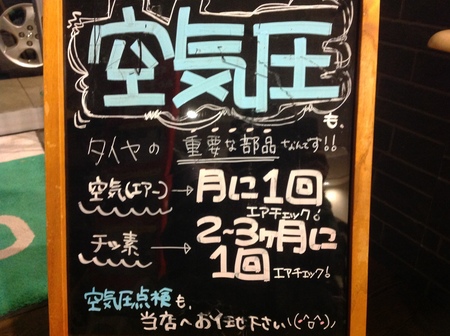 空気圧
も、
タイヤの 重要な部品 なんです!!
空気(エアー)→月に1回
エアチェック!
チッ素→2~3ヶ月に
1回 エアチェック!
空気圧点検も、
当店へお任せ下さい(^ー^)